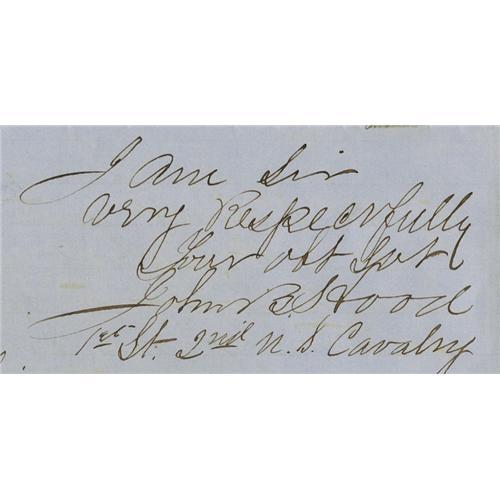 I am Sir
very Respectfully
Your obt Svt
John B. Hood
1st Lt. 2nd U.S. Cavalry